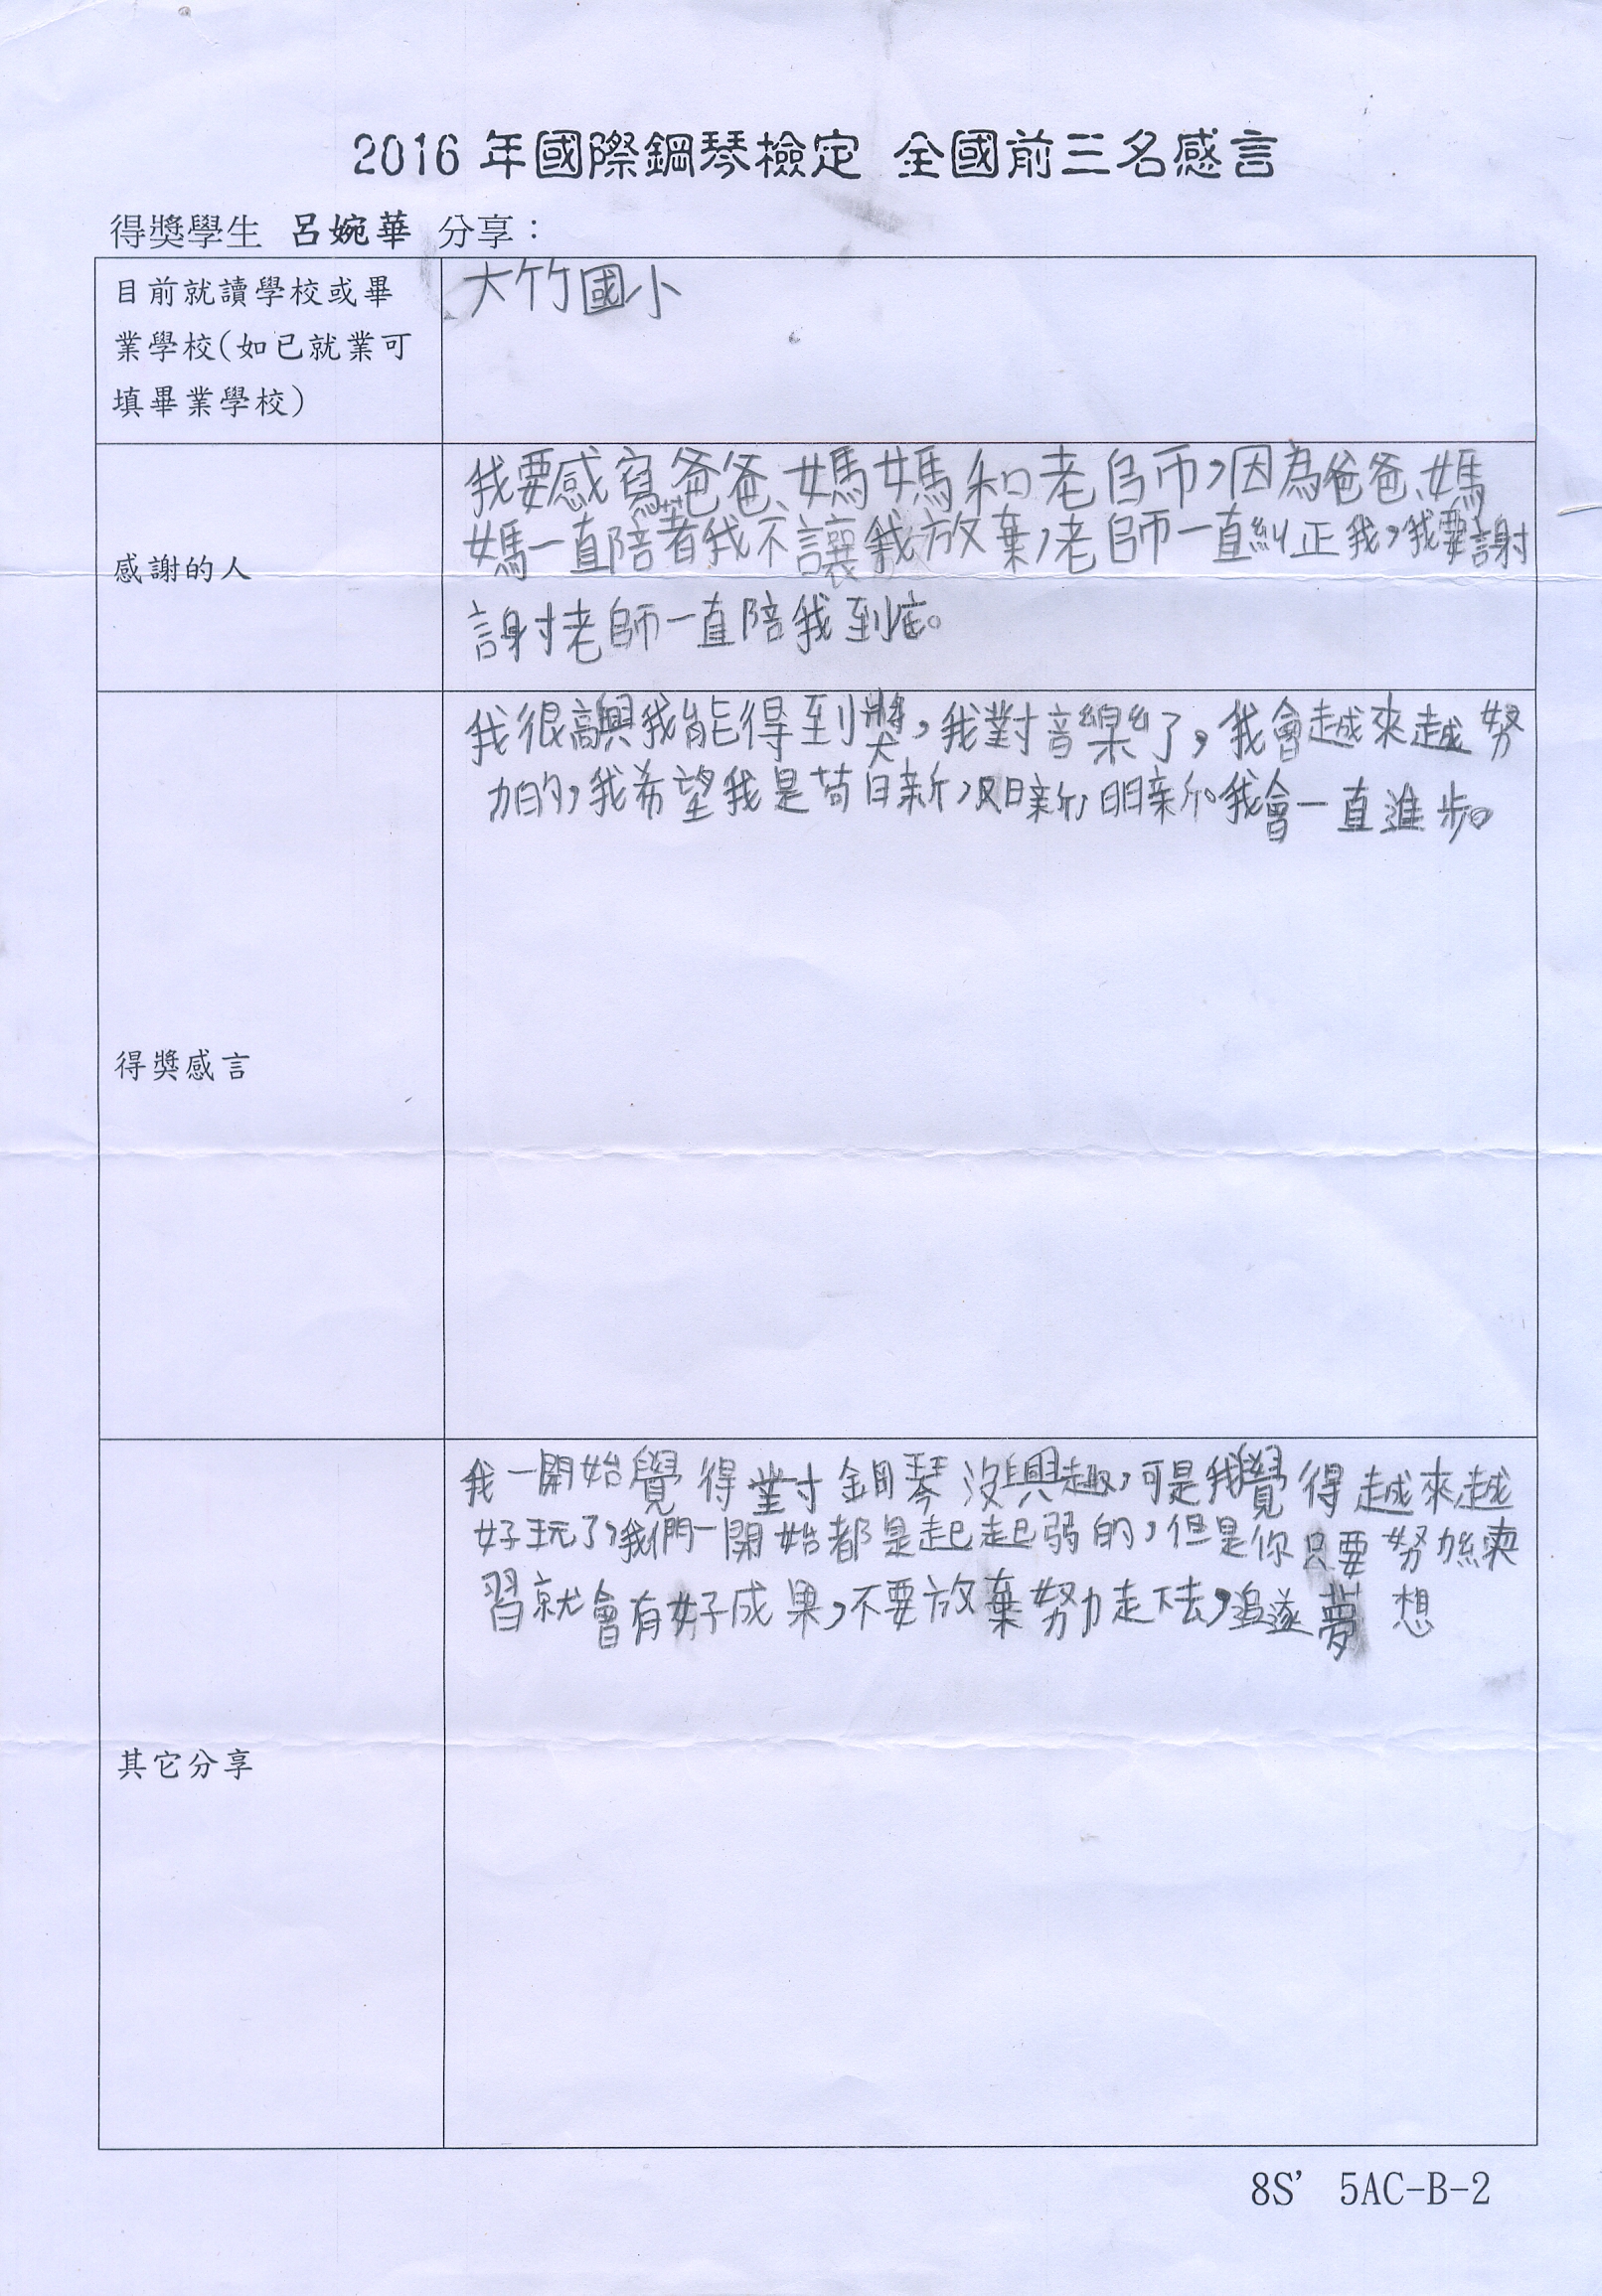 2016 年國際鋼琴檢定 全國前三名感言
得獎學生 呂婉華 分享：
目前就讀學校或畢
業學校(如已就業可
填畢業學校)
大竹國小
感謝的人
我要感寫爸爸、媽媽和老師，因為爸爸、媽
媽一直陪著我不讓我放棄，老師一直糾正我，我要謝
謝老師一直陪我到底。
得獎感言
我很高興我能得到獎，我對音樂了，我會越來越努
力的，我希望我是苟日新，又日新，日日新。我會一直進步。
其它分享
我一開始覺得對鋼琴沒興趣，可是我覺得越來越
好玩了，我們一開始都是起起弱的，但是你只要努力練
習就會有好成果，不要放棄努力走下去，追逐夢想
8S' 5AC-B-2